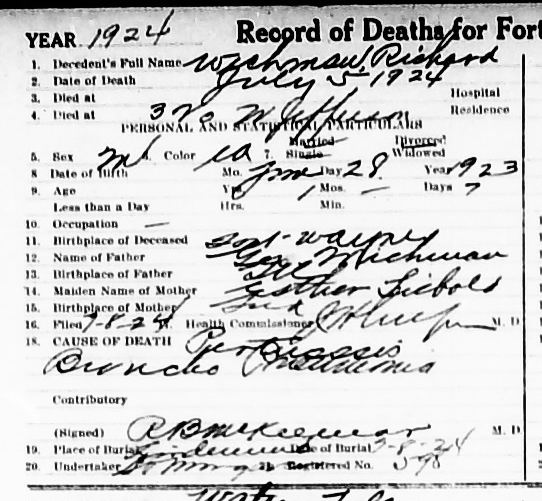 YEAR 1924 Record of Deaths for Fort
1. Decedent's Full Name Wichman, Richard
2. Date of Death July 5-1924
3. Died at Hospital
4. Died at W Jefferson Residence
PERSONAL AND STATISTICAL PARTICULARS
Married Divorced
5. Sex M 6. Color 7. Single Widowed
8 Date of Birth Mo. June Day 28 Year 1923
9. Age Yrs. 1 Mos. — Days 7
Less than a Day Hrs. Min.
10. Occupation —
11. Birthplace of Deceased Fort-Wayne
12. Name of Father Geo Wichman
13. Birthplace of Father
14. Maiden Name of Mother Esther Liebold
15. Birthplace of Mother Ind
16. Filed 7-8-24 Health Commissioner M. D
18. CAUSE OF DEATH Pertussis
Broncho Pneumonia
Contributory
(Signed) M. D
19. Place of Burial Date of Burial 7-8-24
20. Undertaker 21. Registered No. 598